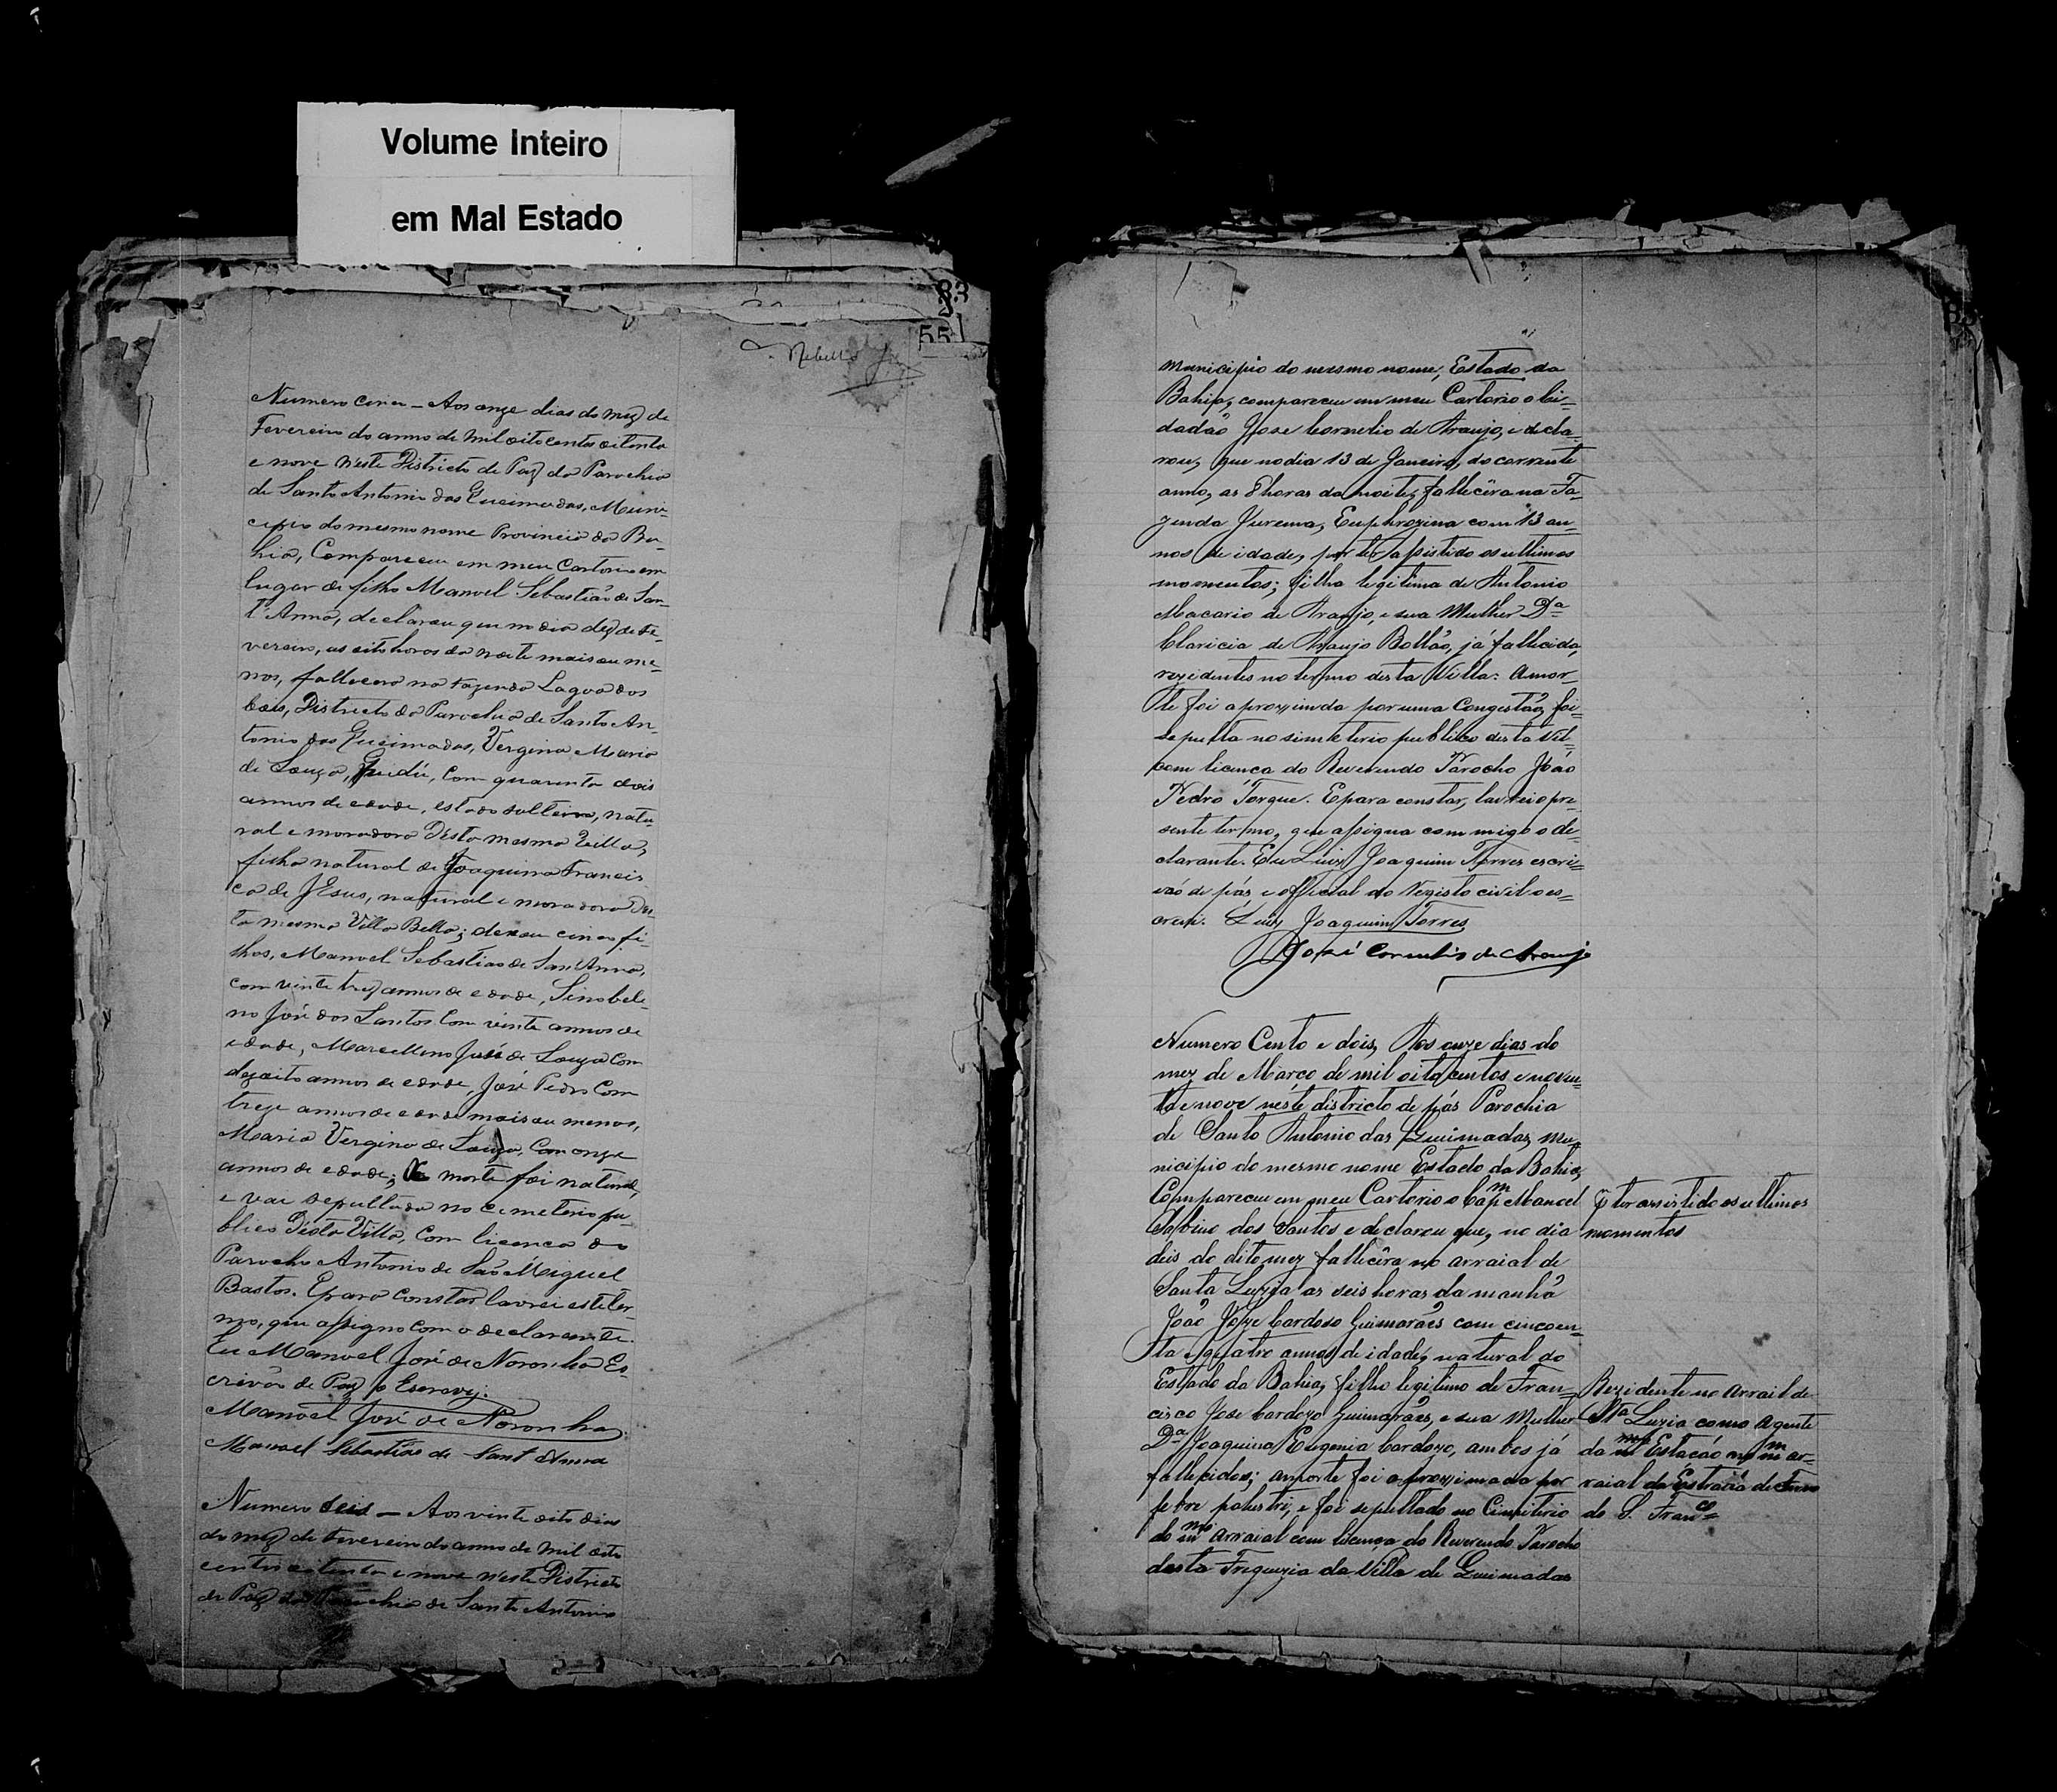 Volume Inteiro
em Mal Estado
83
55
Rebello
Numero cinco — Aos onze dias do mez de
Fevereiro do anno de mil oito centos oitenta
e nove n'este Districto de Paz da Parochia
de Santo Antonio das Queimadas, Muni-
cipio do mesmo nome Provincia da Ba-
hia, Compareceu em meu Cartorio em
lugar de filho Manoel Sebastião de San-
t'Anna, declarou que no dia dez de Fe-
vereiro, as oito horas da noite mais ou me-
nos, falleceu na Fazenda Lagoa dos
bois, Districto da Parochia de Santo An-
tonio das Queimadas, Vergina Maria
de Souza, com quarenta dois
annos de edade, estado solteira, natu-
ral e moradora desta mesma Villa,
filha natural de Joaquina Francis
ca de Jesus, natural e moradora des-
ta mesma Villa Bella; deixou cinco fi-
lhos, Manoel Sebastião de Sant'Anna,
com vinte trez annos de edade, Sinobeli-
no José dos Santos com vinte annos de
edade, Marcellino José de Souza com
dezoito annos de edade, José Pedro com
treze annos de edade mais ou menos,
Maria Vergina de Souza, com onze
annos de edade; A morte foi natural,
e vae sepultada no cemeterio pu-
blico desta Villa, com licença do
Parocho Antonio de São Miguel
Bastos. E para constar lavrei este ter-
mo, que assigno com o declarante.
Eu Manoel José de Noronha Es-
crivão de Paz o Escrevy.
Manoel José de Noronha
Manoel Sebastião de Sant Anna
Numero Seis — Aos vinte oito dias
do mez de Fevereiro do anno de mil oito
centos oitenta e nove n'este Districto
de Paz da Parochia de Santo Antonio
municipio do mesmo nome, Estado da
Bahia, compareceu em meu Cartorio o Ci-
dadão José Cornelio de Araujo, e decla-
rou, que no dia 13 de Janeiro, do corrente
anno, as 8 horas da noite, fallecêra na Fa-
zenda Jurema, Euphrozina com 13 an-
nos de idade, por ter assistido os ultimos
momentos; filha legitima de Antonio
Macario de Araujo, e sua Mulher Dª
Claricia de Araujo Bollão, já fallecida,
rezidentes no termo desta Villa: a mor-
te foi aproximda por uma Congestão, foi
sepulta no simeterio publico desta Vil-,
com licença do Reverendo Parocho João
Pedro Torgue. E para constar, lavrei o pre-
sente termo, que assigna commigo o de-
clarante. Eu Luiz Joaquim Torres escri-
vão de páz, e official do Registo civil o es-
crevi. Luiz Joaquim Torres
José Cornelio de Araujo
Numero Cento e dois, Aos onze dias do
mez de Março de mil oito centos e noven-
ta e nove neste districto de pás Parochia
de Santo Antonio das Queimadas, Mu-
nicipio do mesmo nome Estado da Bahia,
Compareceu em meu Cartorio o Capᵐ Manoel
Sabino dos Santos e declarou que, no dia
dois do dito mez fallecêra no arraial de
Santa Luzia as seis horas da manhã
João Jôze Cardoso Guimarães com cincoen-
ta e quatro annos de idade, natural do
Estado da Bahia, filho legitimo de Fran-
cisco Jose Cardozo Guimarães, e sua Mulher
Dª Joaquina Eugenia Cardozo, ambos já
fallecidos; a morte foi aproximada por
febre palustri, e foi sepultado no Cimiterio
do mᵐᵒ arraial com licença do Reverendo Parocho
desta Freguezia da Villa de Queimadas
E ter assistido os ultimos
momentos
Rezidente no Arrail de
Stª Luzia como agente
da mᵐᵃ Estação no mᵐ ar-
raial da Estrada de Ferro
do S. Franᶜᵒ